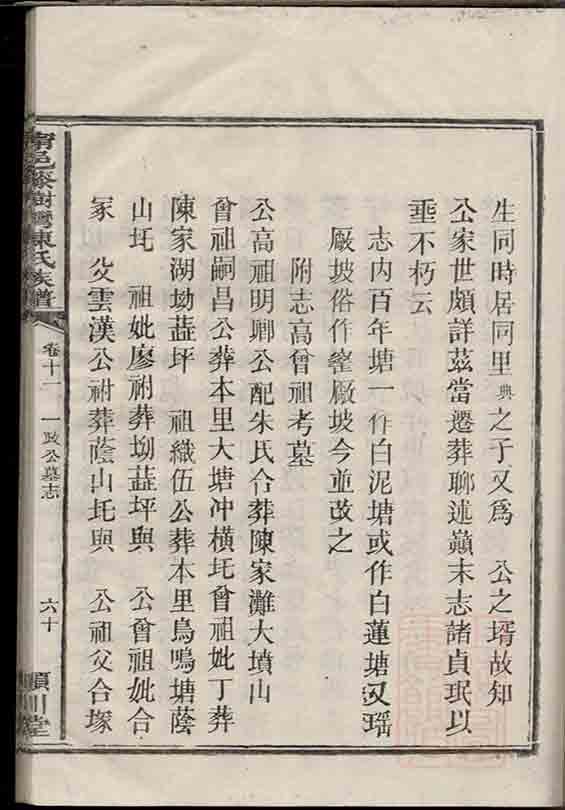 生同時居同里典之子又為　公之壻故知
公家世頗詳茲當遷葬聊述巔末志諸貞珉以
垂不朽云
志內百年塘一作白泥塘或作白蓮塘又瑶
厰坡俗作窰厰坡今並改之
附志高曾祖考墓
公高祖明卿公配朱氏合葬陳家灘大墳山
曾祖嗣昌公葬本里大塘冲橫圫曾祖妣丁葬
陳家湖坳藠坪　祖織伍公葬本里鳥鳴塘蔭
山圫　祖妣廖祔葬坳藠坪與　公曾祖妣合
冢　父雲漢公祔葬蔭山圫與　公祖父合塚
樹灣陳氏族譜
卷十二
一政公墓志
六十
潁川堂